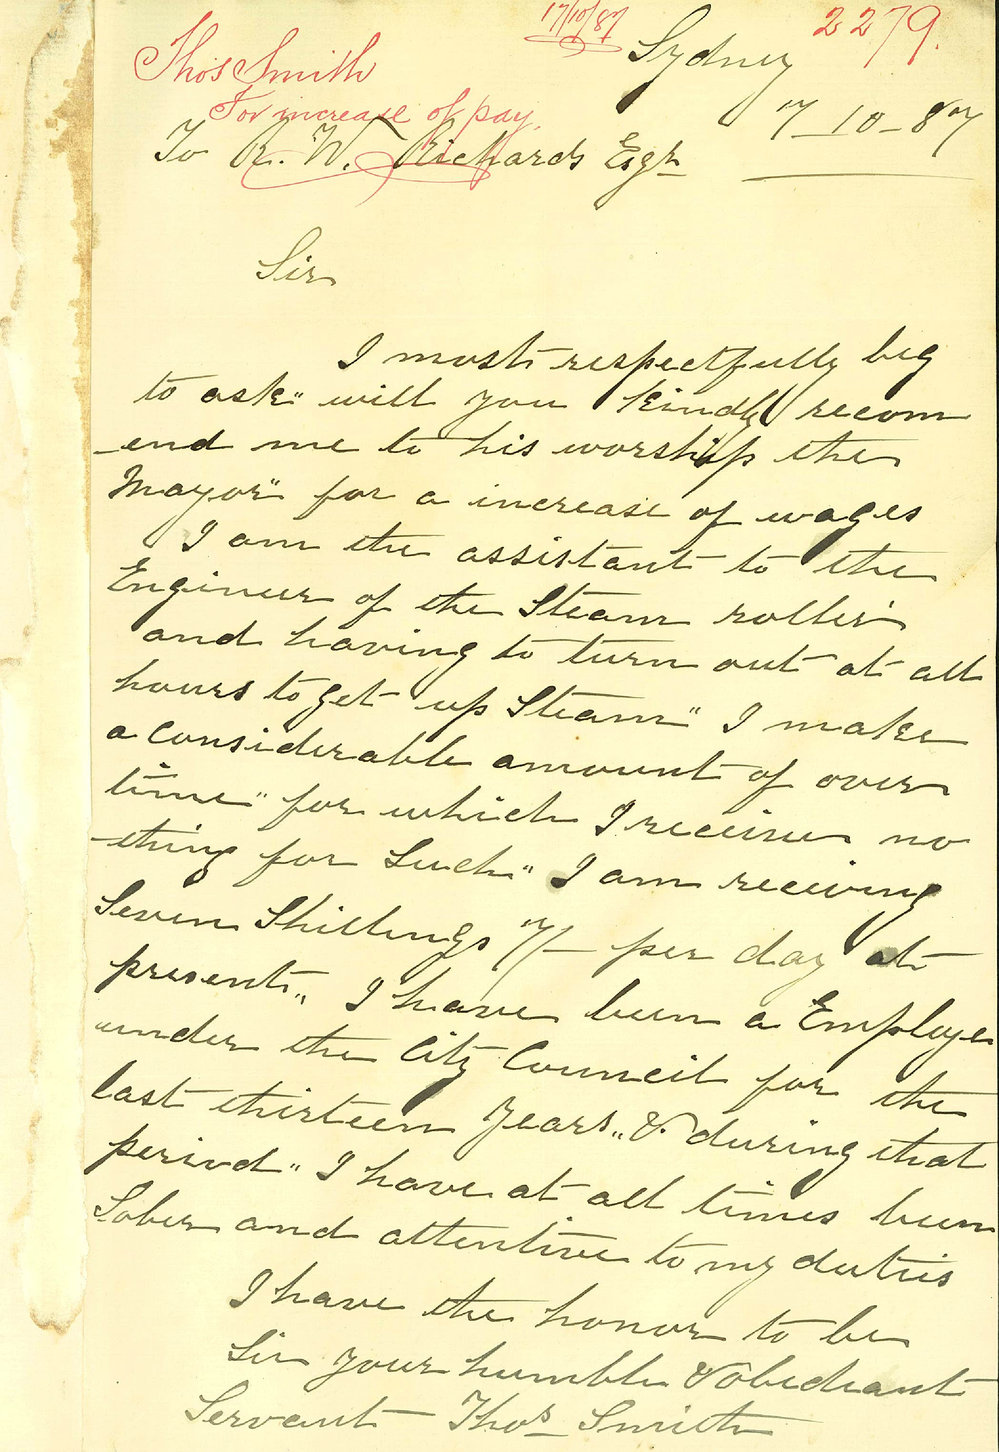 17/10/87
2279.
Thos Smith
For increase of pay.
Sydney
7-10-87
To R. W. Richards Esqr
Sir
I most respectfully beg
to ask" will you kindly recom
-end me to his worship the
Mayor" for a increase of wages
I am the assistant to the
Engineer of the Steam roller"
and having to turn out at all
hours to get up Steam" I make
a considerable amount of over
time" for which I receive no
-thing for Such" I am receiving
Seven Shillings 7/- per day at
present" I have been a Employe
under the City Council for the
last thirteen years" & during that
period" I have at all times been
Sober and attentive to my duties
I have the honor to be
Sir your humble & obediant
Servant Thos Smith